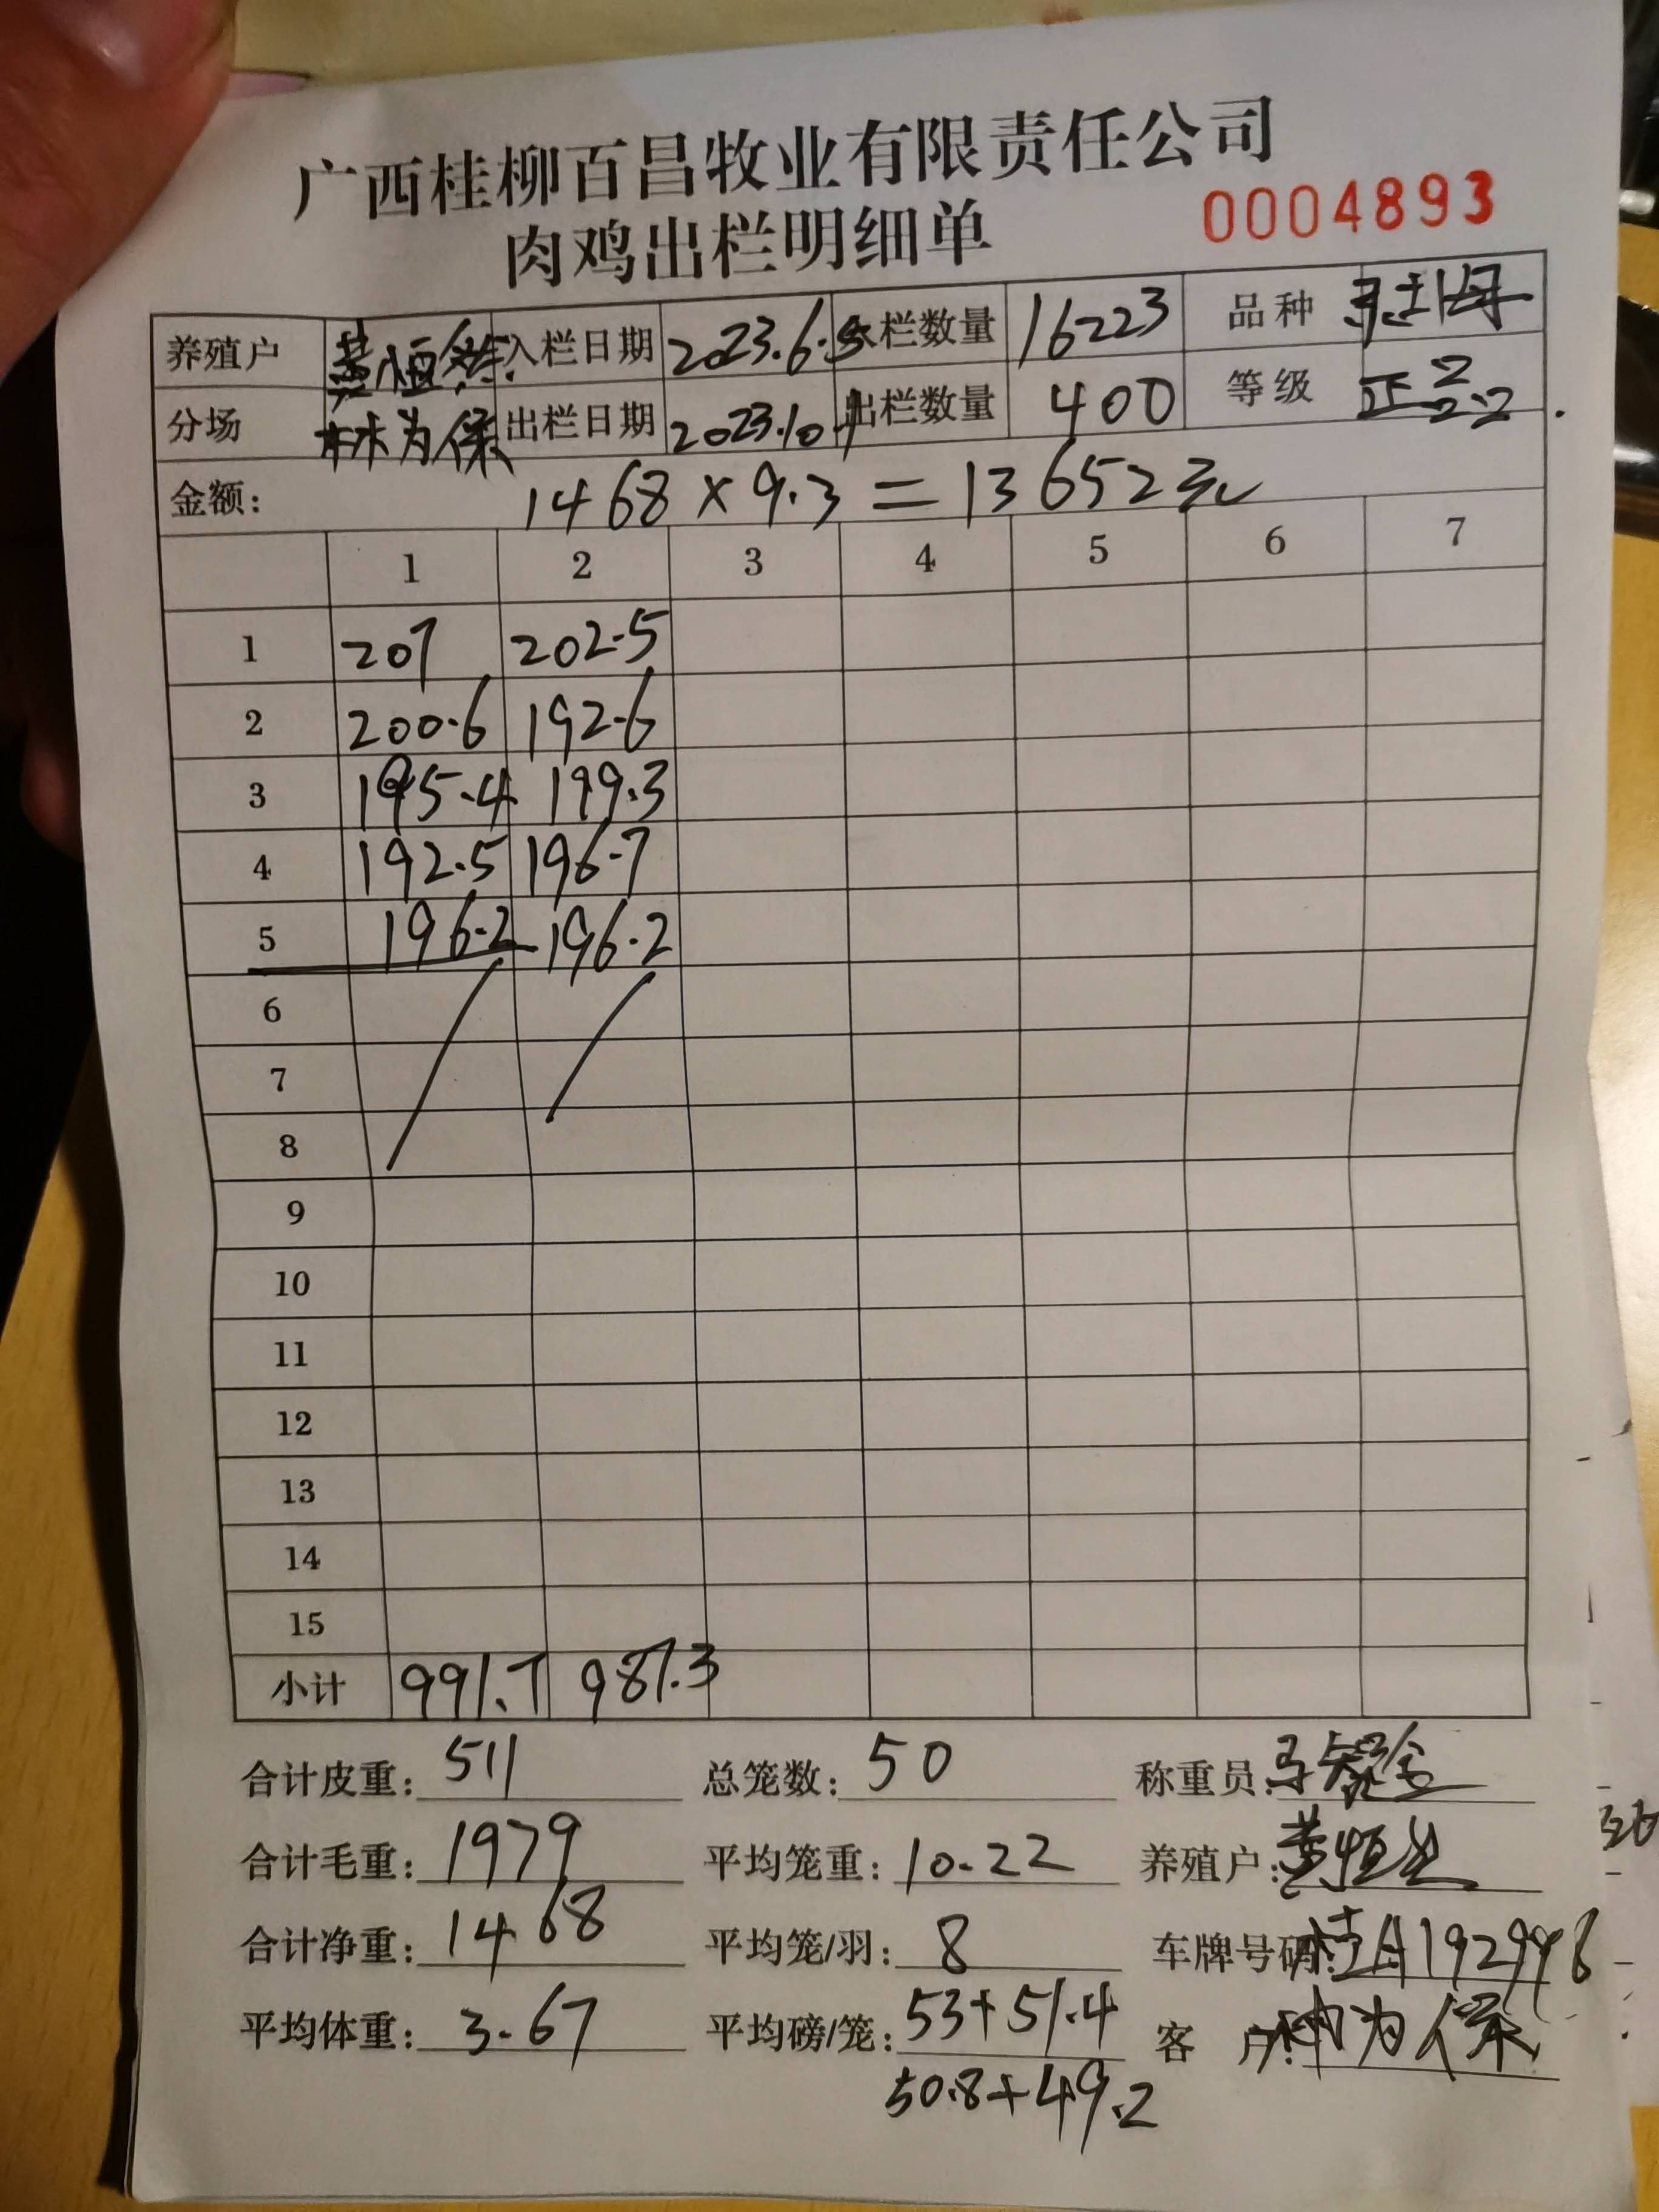 广西桂柳百昌牧业有限责任公司
肉鸡出栏明细单 0004893
养殖户 黄恒 入栏日期 2023.6.5 入栏数量 16223 品种
分场 林为保 出栏日期 2023.10.1 出栏数量 400 等级 正
金额: 1468×9.3=13652元
1 2 3 4 5 6 7
1 207 202.5
2 200.6 192.6
3 195.4 199.3
4 192.5 196.7
5 196.2 196.2
6
7
8
9
10
11
12
13
14
15
小计 991.7 987.3
合计皮重: 511 总笼数: 50 称重员:
合计毛重: 1979 平均笼重: 10.22 养殖户: 黄恒
合计净重: 1468 平均笼/羽: 8 车牌号码:
平均体重: 3.67 平均磅/笼: 53+51.4 客 户: 林为保
50.8+49.2